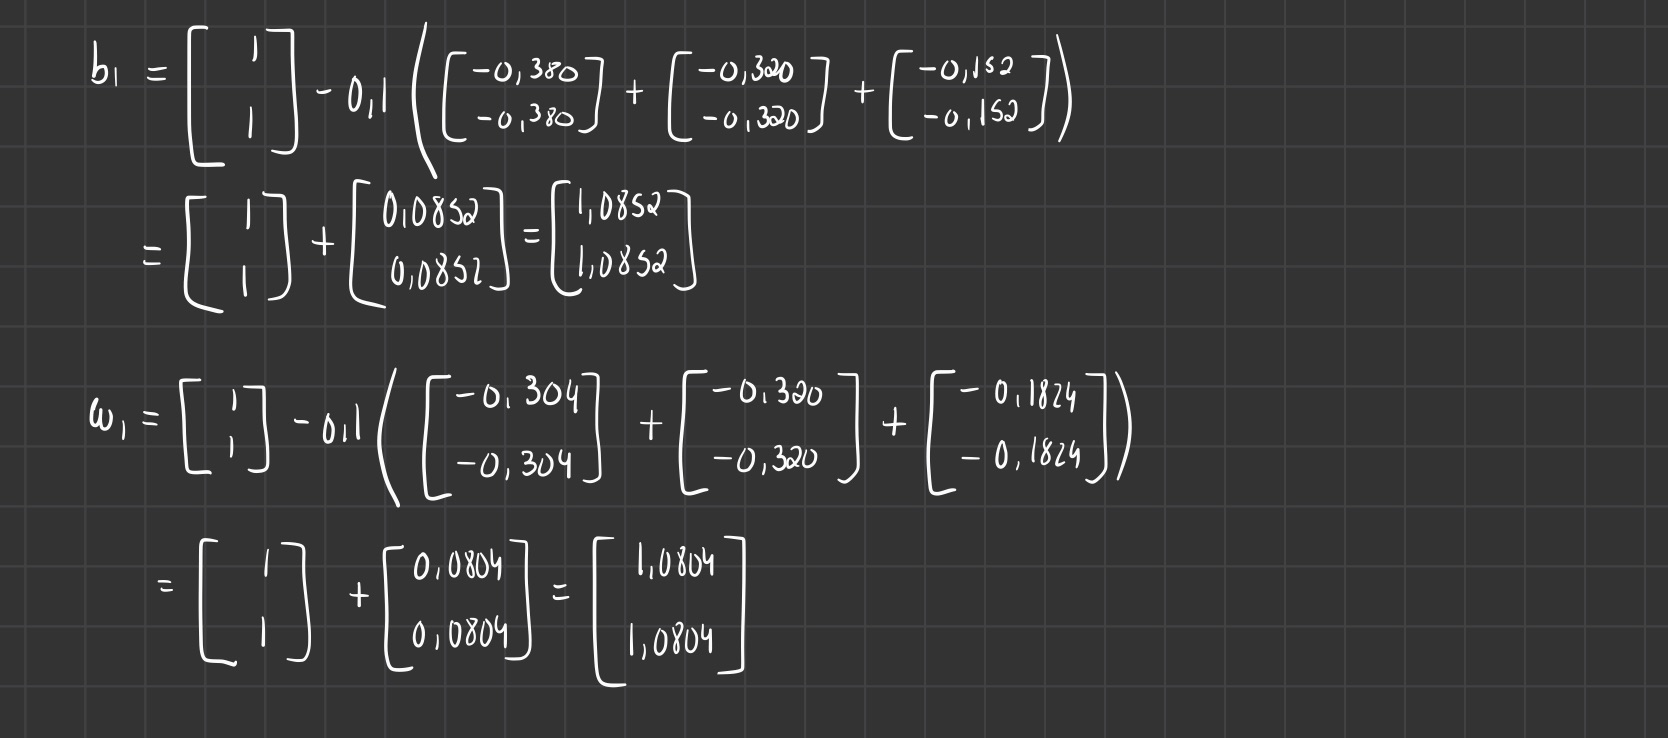 b₁ = [1 1] - 0,1 ([-0,380 -0,380] + [-0,320 -0,320] + [-0,152 -0,152])
= [1 1] + [0,0852 0,0852] = [1,0852 1,0852]
ω₁ = [1 1] - 0,1 ([-0,304 -0,304] + [-0,320 -0,320] + [-0,1824 -0,1824])
= [1 1] + [0,0804 0,0804] = [1,0804 1,0804]